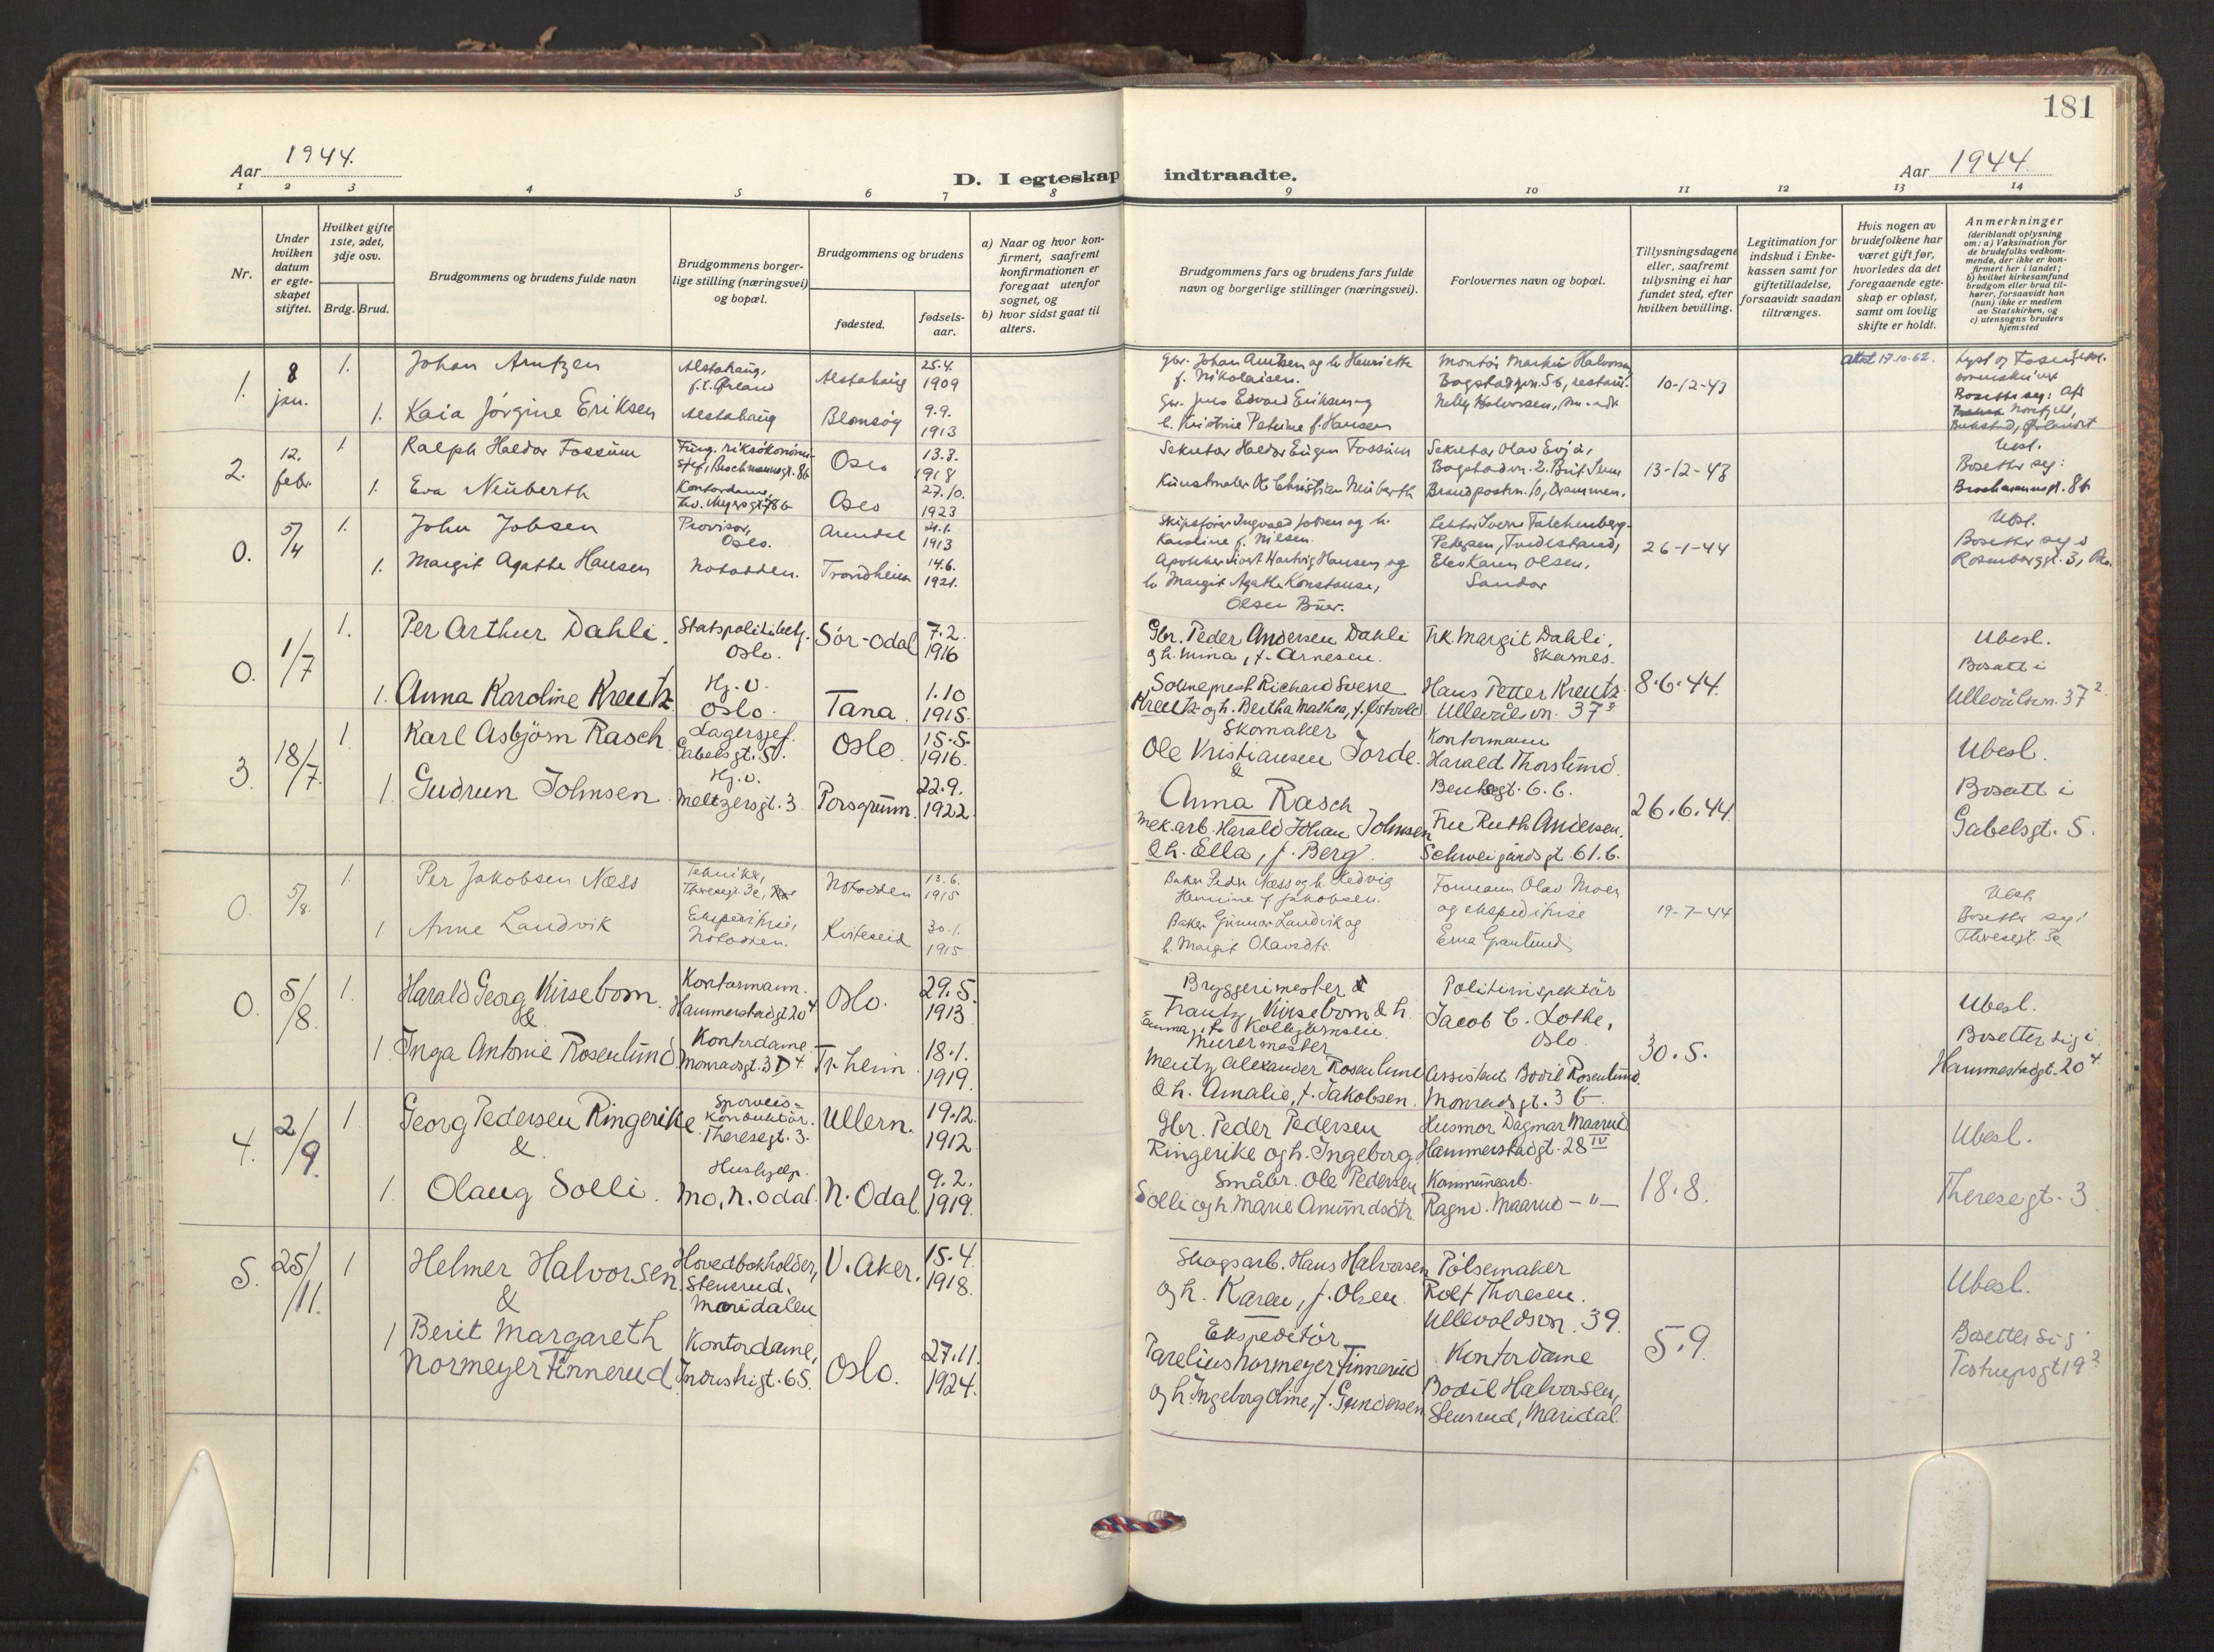 181
Aar 1944.
D. I egteskap indtraadte.
Aar 1944.
1 2 3 4 5 6 7 8 9 10 11 12 13 14
Nr.
Under hvilken datum er egteskapet stiftet.
Hvilket gifte 1ste, 2det, 3dje osv.
Brdg. Brud.
Brudgommens og brudens fulde navn
Brudgommens borgerlige stilling (næringsvei) og bopæl.
Brudgommens og brudens
fødested.
fødselsaar.
a) Naar og hvor konfirmert, saafremt konfirmationen er foregaat utenfor sognet, og
b) hvor sidst gaat til alters.
Brudgommens fars og brudens fars fulde navn og borgerlige stillinger (næringsvei).
Forlovernes navn og bopæl.
Tillysningsdagene eller, saafremt tillysning ei har fundet sted, efter hvilken bevilling.
Legitimation for indskud i Enkekassen samt for giftetilladelse, forsaavidt saadan tiltrænges.
Hvis nogen av brudefolkene har været gift før, hvorledes da det foregaaende egteskap er opløst, samt om lovlig skifte er holdt.
Anmerkninger (deriblandt oplysning om: a) Vaksination for de brudefolks vedkommende, der ikke er konfirmert her i landet; b) hvilket kirkesamfund brudgom eller brud tilhører, forsaavidt han (hun) ikke er medlem av Statskirken, og c) utensogns bruders hjemsted
1. 8 jan. 1. Johan Arntzen
Alstahaug, f.t. Ørland
Alstahaug
25.4. 1909
Gbr. Johan Arntzen og h. Henriette f. Nikolaisen.
Montør Martin Halvorsen Bogstadvn. 56, restaur.
10-12-43
Attest 17.10.62.
1. Kaia Jørgine Eriksen
Alstahaug
Blomsøy
9.9. 1913
Gbr. Jens Edvard Eriksen og h. Kristine Petrine f. Hansen
Nelly Halvorsen,
Bosetter seg:
2. 12. febr. 1. Ralph Haldor Fossum
Fung. riksøkonomi-
Oslo
13.3. 1918
Sekretær Haldor Eugen Fossum
Sekretær Olav Evjå, Bogstadvn. 2.
13-12-43
Ubesl.
Bosetter seg:
Brochmannsgt. 8b
1. Eva Neuberth
Kontordame,
Oslo
27.10. 1923
Kunstmaler Christian Neuberth
Brandpostvn. 10, Drammen.
0. 5/4 1. John Jobsen
Provisor, Oslo.
Arendal
21.1. 1913
Skipsfører Ingvald Jobsen og h. Karoline f. Nilsen.
Lektor Sverre Falchenberg-Pedersen, Tvedestrand,
26-1-44
Ubesl.
Bosetter seg i
Rosenborggt. 3,
1. Margit Agathe Hansen
Notodden.
Trondheim
14.6. 1921.
Apoteker Sivert Hartvig Hansen og h. Margit Agathe Konstanse, Olsen Buer.
Elev Karen Olsen, Sandar
0. 1/7 1. Per Arthur Dahli.
Statspolitibetj. Oslo.
Sör-Odal
7.2. 1916
Gbr. Peder Andersen Dahli og h. Mina, f. Arnesen.
Frk. Margit Dahli, Skarnes.
8.6.44.
Ubesl.
Bosatt i
Ullevålsvn. 37²
1. Anna Karoline Kreutz
Hj.v. Oslo.
Tana.
1.10 1915.
Sokneprest Richard Sverre Kreutz og h. Bertha Mathea, f. Østvold
Hans Petter Kreutz. Ullevålsvn. 37²
3. 18/7. 1. Karl Asbjørn Rasch
Lagersjef. Gabelsgt. 5.
Oslo.
15.5. 1916.
Skomaker Ole Kristiansen Jorde. & Anna Rasch
Kontormann Harald Thorslund. 
26.6.44.
Ubesl.
Bosatt i
Gabelsgt. 5.
1. Gudrun Johnsen.
Hj.v. Meltzersgt. 3.
Porsgrunn.
22.9. 1922.
Mek.arb. Harald Johan Johnsen & h. Ella, f. Berg.
Fru Ruth Andersen. Schweigårdsgt. 61.b.
0. 5/8. 1. Per Jakobsen Næss
Tekniker, Theresegt. 3c,
Notodden
13.6. 1915
Baker Peder Næss og h. Hedvig Henrine f. Jakobsen.
Formann Olav Moen
19-7-44
Ubesl.
Bosetter seg:
Theresegt. 3c
1. Anne Landvik
Ekspeditrise, Notodden.
Kviteseid
30.1. 1915
Baker Gunnar Landvik og h. Margit Olavsdtr.
og ekspeditrise Erna Granlund
0. 5/8. 1. Harald Georg Kirsebom. &
Kontormann. Hammerstadgt 20⁴
Oslo.
29.5. 1913
Bryggerimester Frantz Kirsebom & h. Emma, f. Kolbjörnsen.
Politiinspektör Jacob C. Lothe, Oslo
30.5.
Ubesl.
Bosetter sig i
Hammerstadgt. 20⁴
1. Inga Antonie Rosenlund.
Kontordame Monradsgt. 3D⁴
Tr.heim.
18.1. 1919.
Murermester Mentz Alexander Rosenlund & h. Amalie, f. Jakobsen.
Assistent Bodil Rosenlund. Monradsgt. 3 b.
4. 2/9. 1 Georg Pedersen Ringerike &
Sporveis-konduktör. Theresegt. 3.
Ullern.
19.12. 1912
Gbr. Peder Pedersen Ringerike og h. Ingeborg
Husmor Dagmar Maarud Hammerstadgt. 28 IV
18.8.
Ubesl.
Theresegt. 3
1. Olaug Solli.
Hushjelp. Mo, N. Odal.
N. Odal.
9.2. 1919.
Småbr. Ole Pedersen Solli og h. Marie Amundsdtr.
Kommunearb. Ragnv. Maarud — " —
5. 25/11. 1 Helmer Halvorsen &
Hovedbokholder, Stensrud, Maridalen
V. Aker.
15.4. 1918.
Skogsarb. Hans Halvorsen og h. Karen, f. Olsen.
Pölsemaker Rolf Thoresen. Ullevoldsvn. 39.
5.9.
Ubesl.
Bosetter sig:
Tostrupsgt 19²
1 Berit Margareth Normeyer Finnerud
Kontordame, Industrigt. 65.
Oslo.
27.11. 1924.
Ekspeditör Parelius Normeyer Finnerud og h. Ingeborg Oline, f. Gundersen
Kontordame Bodil Halvorsen, Stensrud, Maridal.